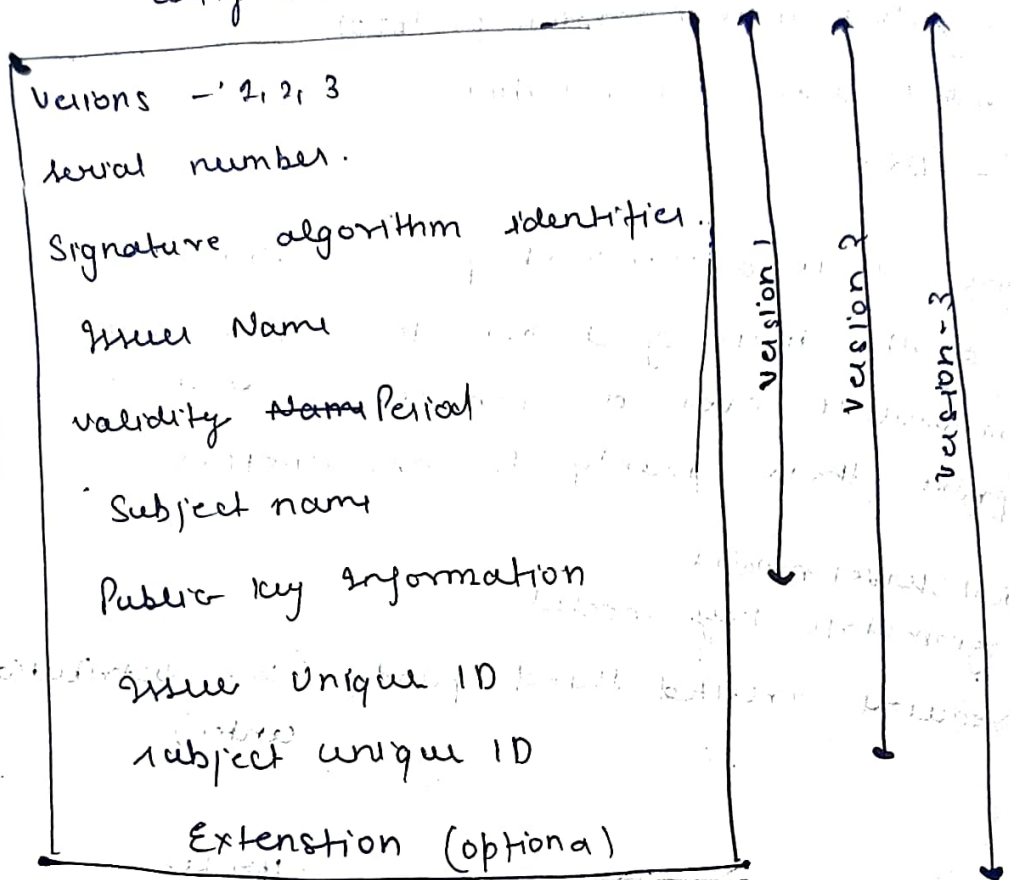 Versions - 1, 2, 3
serial number.
Signature algorithm identifier.
Issuer Name
validity Name Period
Subject name
Public key Information
Issuer Unique ID
subject unique ID
Extenstion (optional)
version 1
version 2
version-3